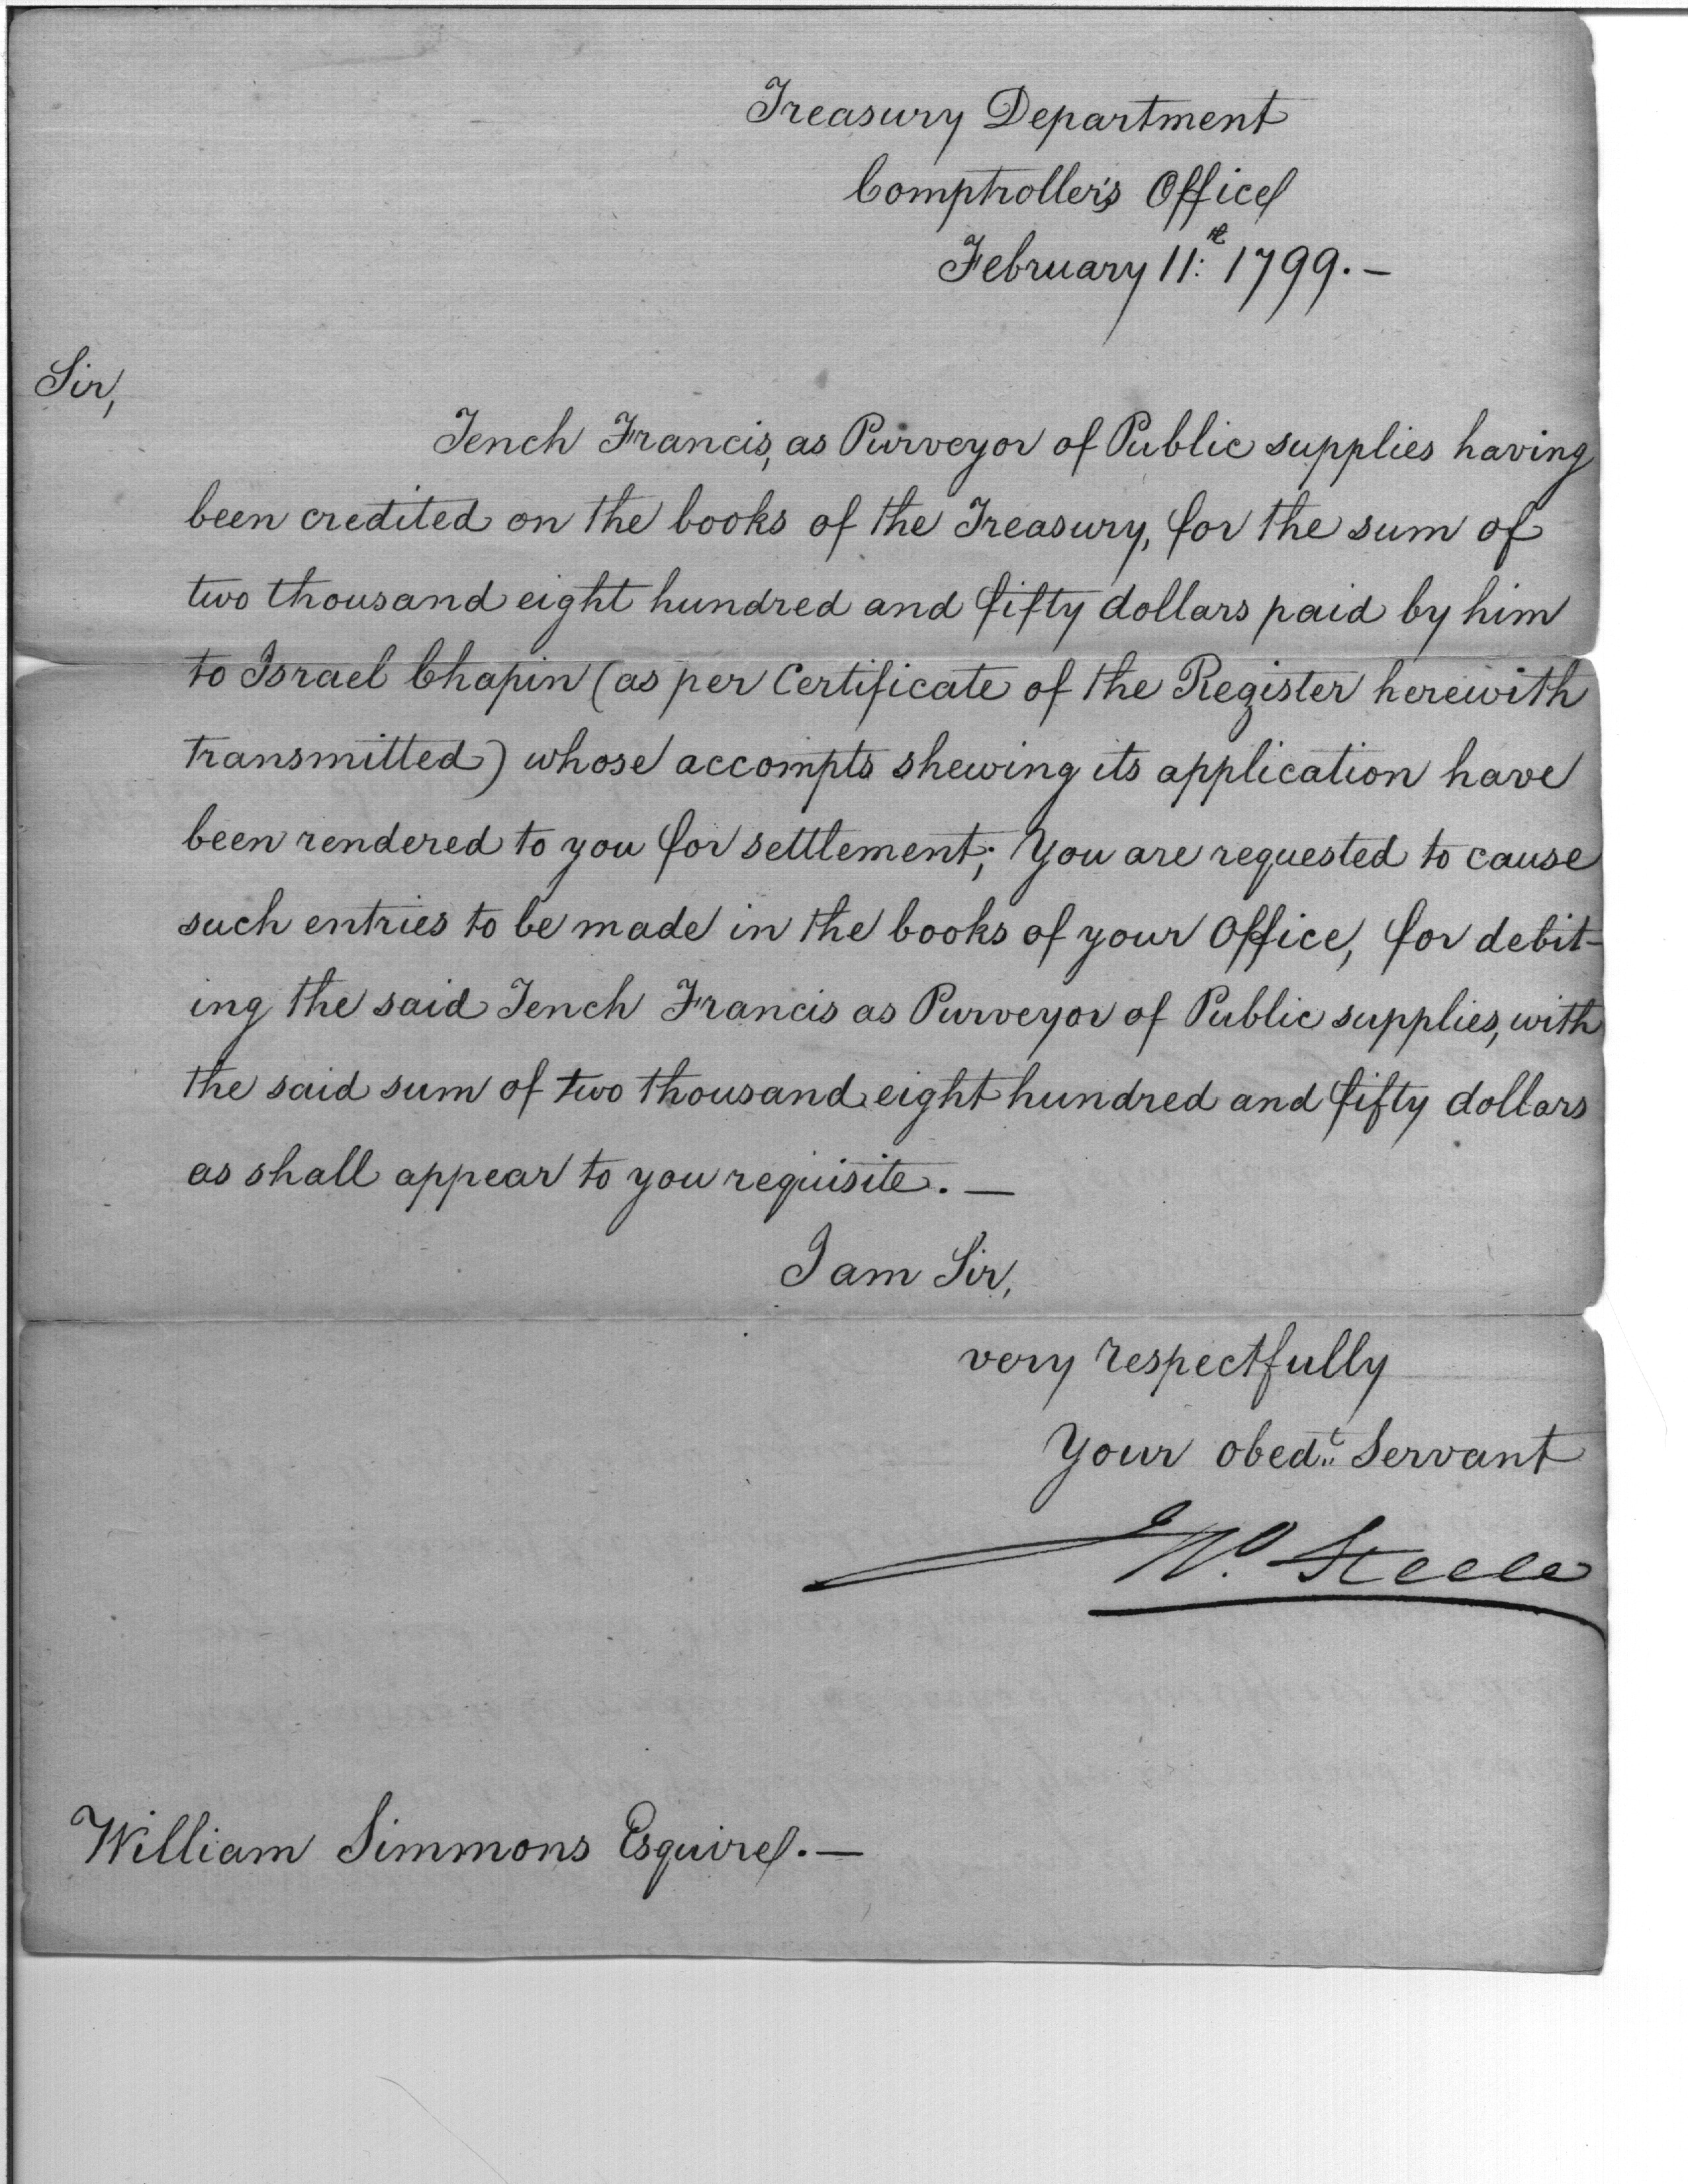 Treasury Department
Comptroller's Office
February 11th: 1799. —
Sir,
Tench Francis, as Purveyor of Public supplies having
been credited on the books of the Treasury, for the sum of
two thousand eight hundred and fifty dollars paid by him
to Israel Chapin (as per Certificate of the Register herewith
transmitted) whose accompts shewing its application have
been rendered to you for settlement; You are requested to cause
such entries to be made in the books of your Office, for debit-
ing the said Tench Francis as Purveyor of Public supplies, with
the said sum of two thousand eight hundred and fifty dollars
as shall appear to you requisite. —
I am Sir,
very respectfully
Your obedt. Servant
Jno. Steele
William Simmons Esquire. —